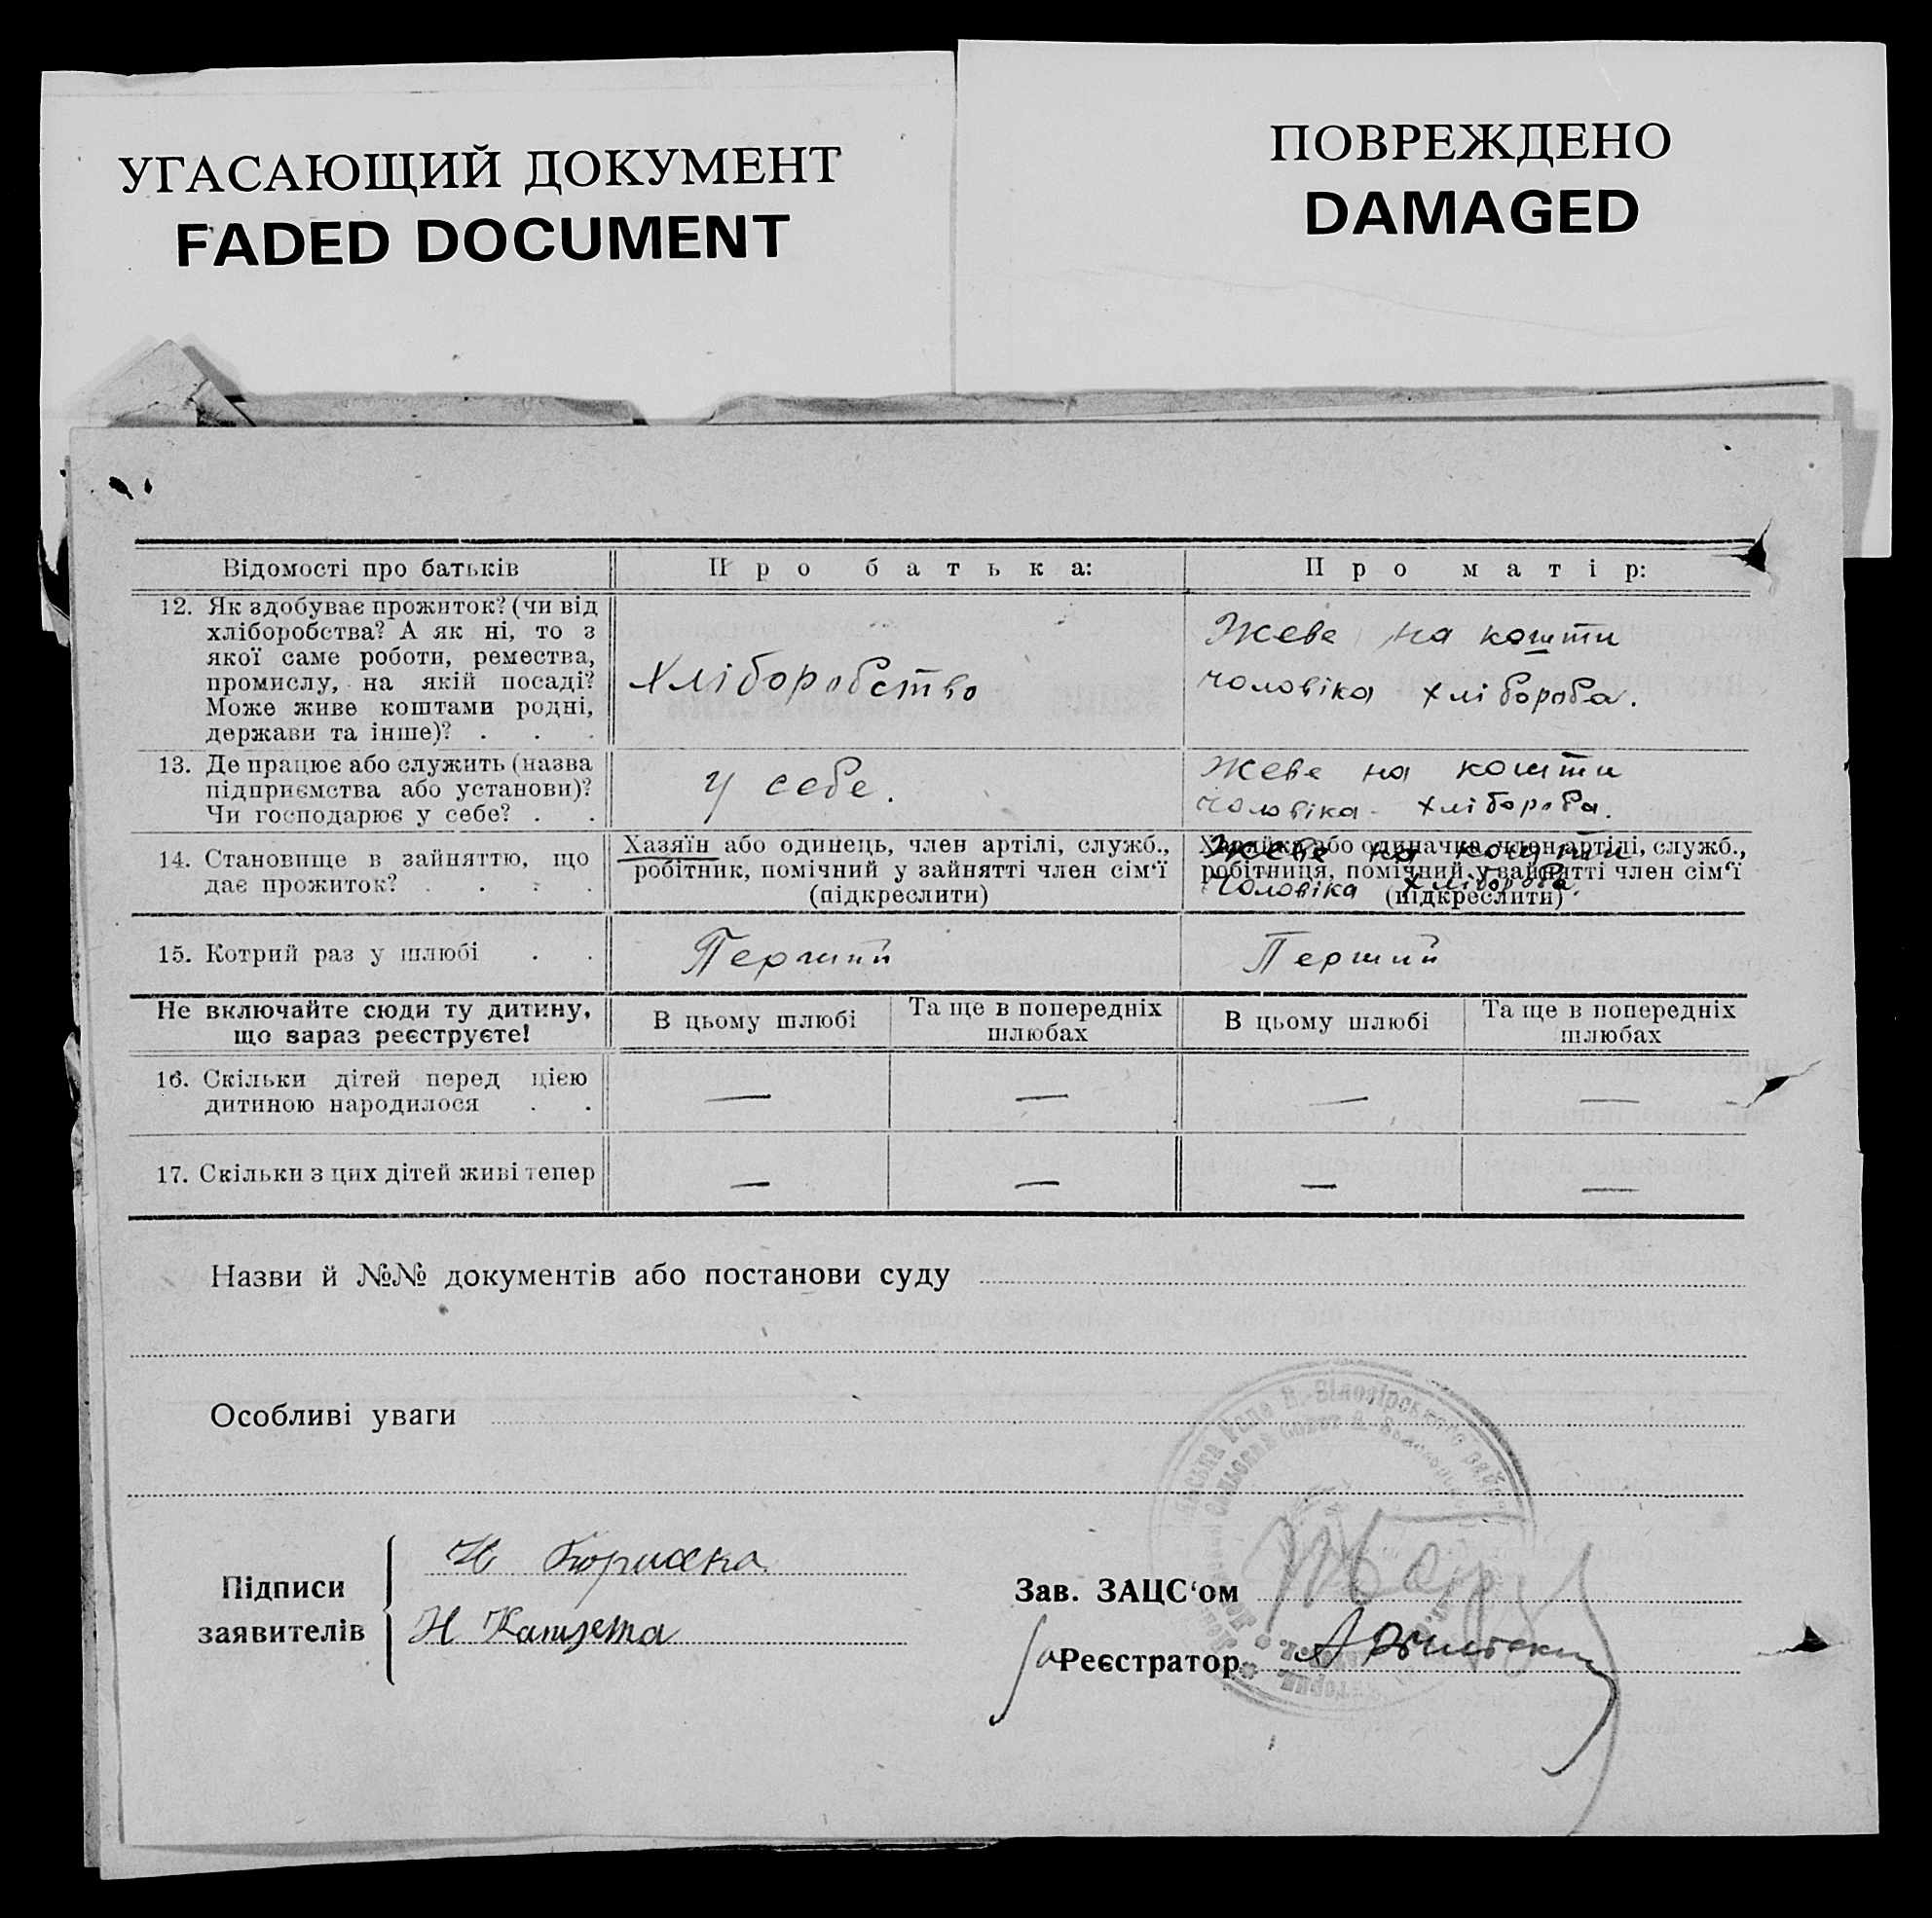 УГАСАЮЩИЙ ДОКУМЕНТ
FADED DOCUMENT
ПОВРЕЖДЕНО
DAMAGED
Відомості про батьків
Про батька:
Про матір:
12. Як здобуває прожиток? (чи від
хліборобства? А як ні, то з
якої саме роботи, ремества,
промислу, на якій посаді?
Може живе коштами родні,
держави та інше)? . . .
Хліборобство
Жеве на кошти
чоловіка хлібороба.
13. Де працює або служить (назва
підприємства або установи)?
Чи господарює у себе? . .
у себе.
Жеве на кошти
чоловіка хлібороба.
14. Становище в зайняттю, що
дає прожиток? . . . .
Хазяїн або одинець, член артілі, служб.,
робітник, помічний у зайнятті член сім‘ї
(підкреслити)
Хазяйка або одиначка, член артілі, служб.,
робітниця, помічний у зайнятті член сім‘ї
(підкреслити)
Жеве на кошти
Чоловіка хлібороба.
15. Котрий раз у шлюбі . .
Перший
Перший
Не включайте сюди ту дитину,
що зараз реєструєте!
В цьому шлюбі
Та ще в попередніх
шлюбах
В цьому шлюбі
Та ще в попередніх
шлюбах
16. Скільки дітей перед цією
дитиною народилося . .
— — — —
17. Скільки з цих дітей живі тепер
— — — —
Назви й №№ документів або постанови суду
Особливі уваги
Підписи
заявителів
Н
Н
Зав. ЗАЦС‘ом
Реєстратор